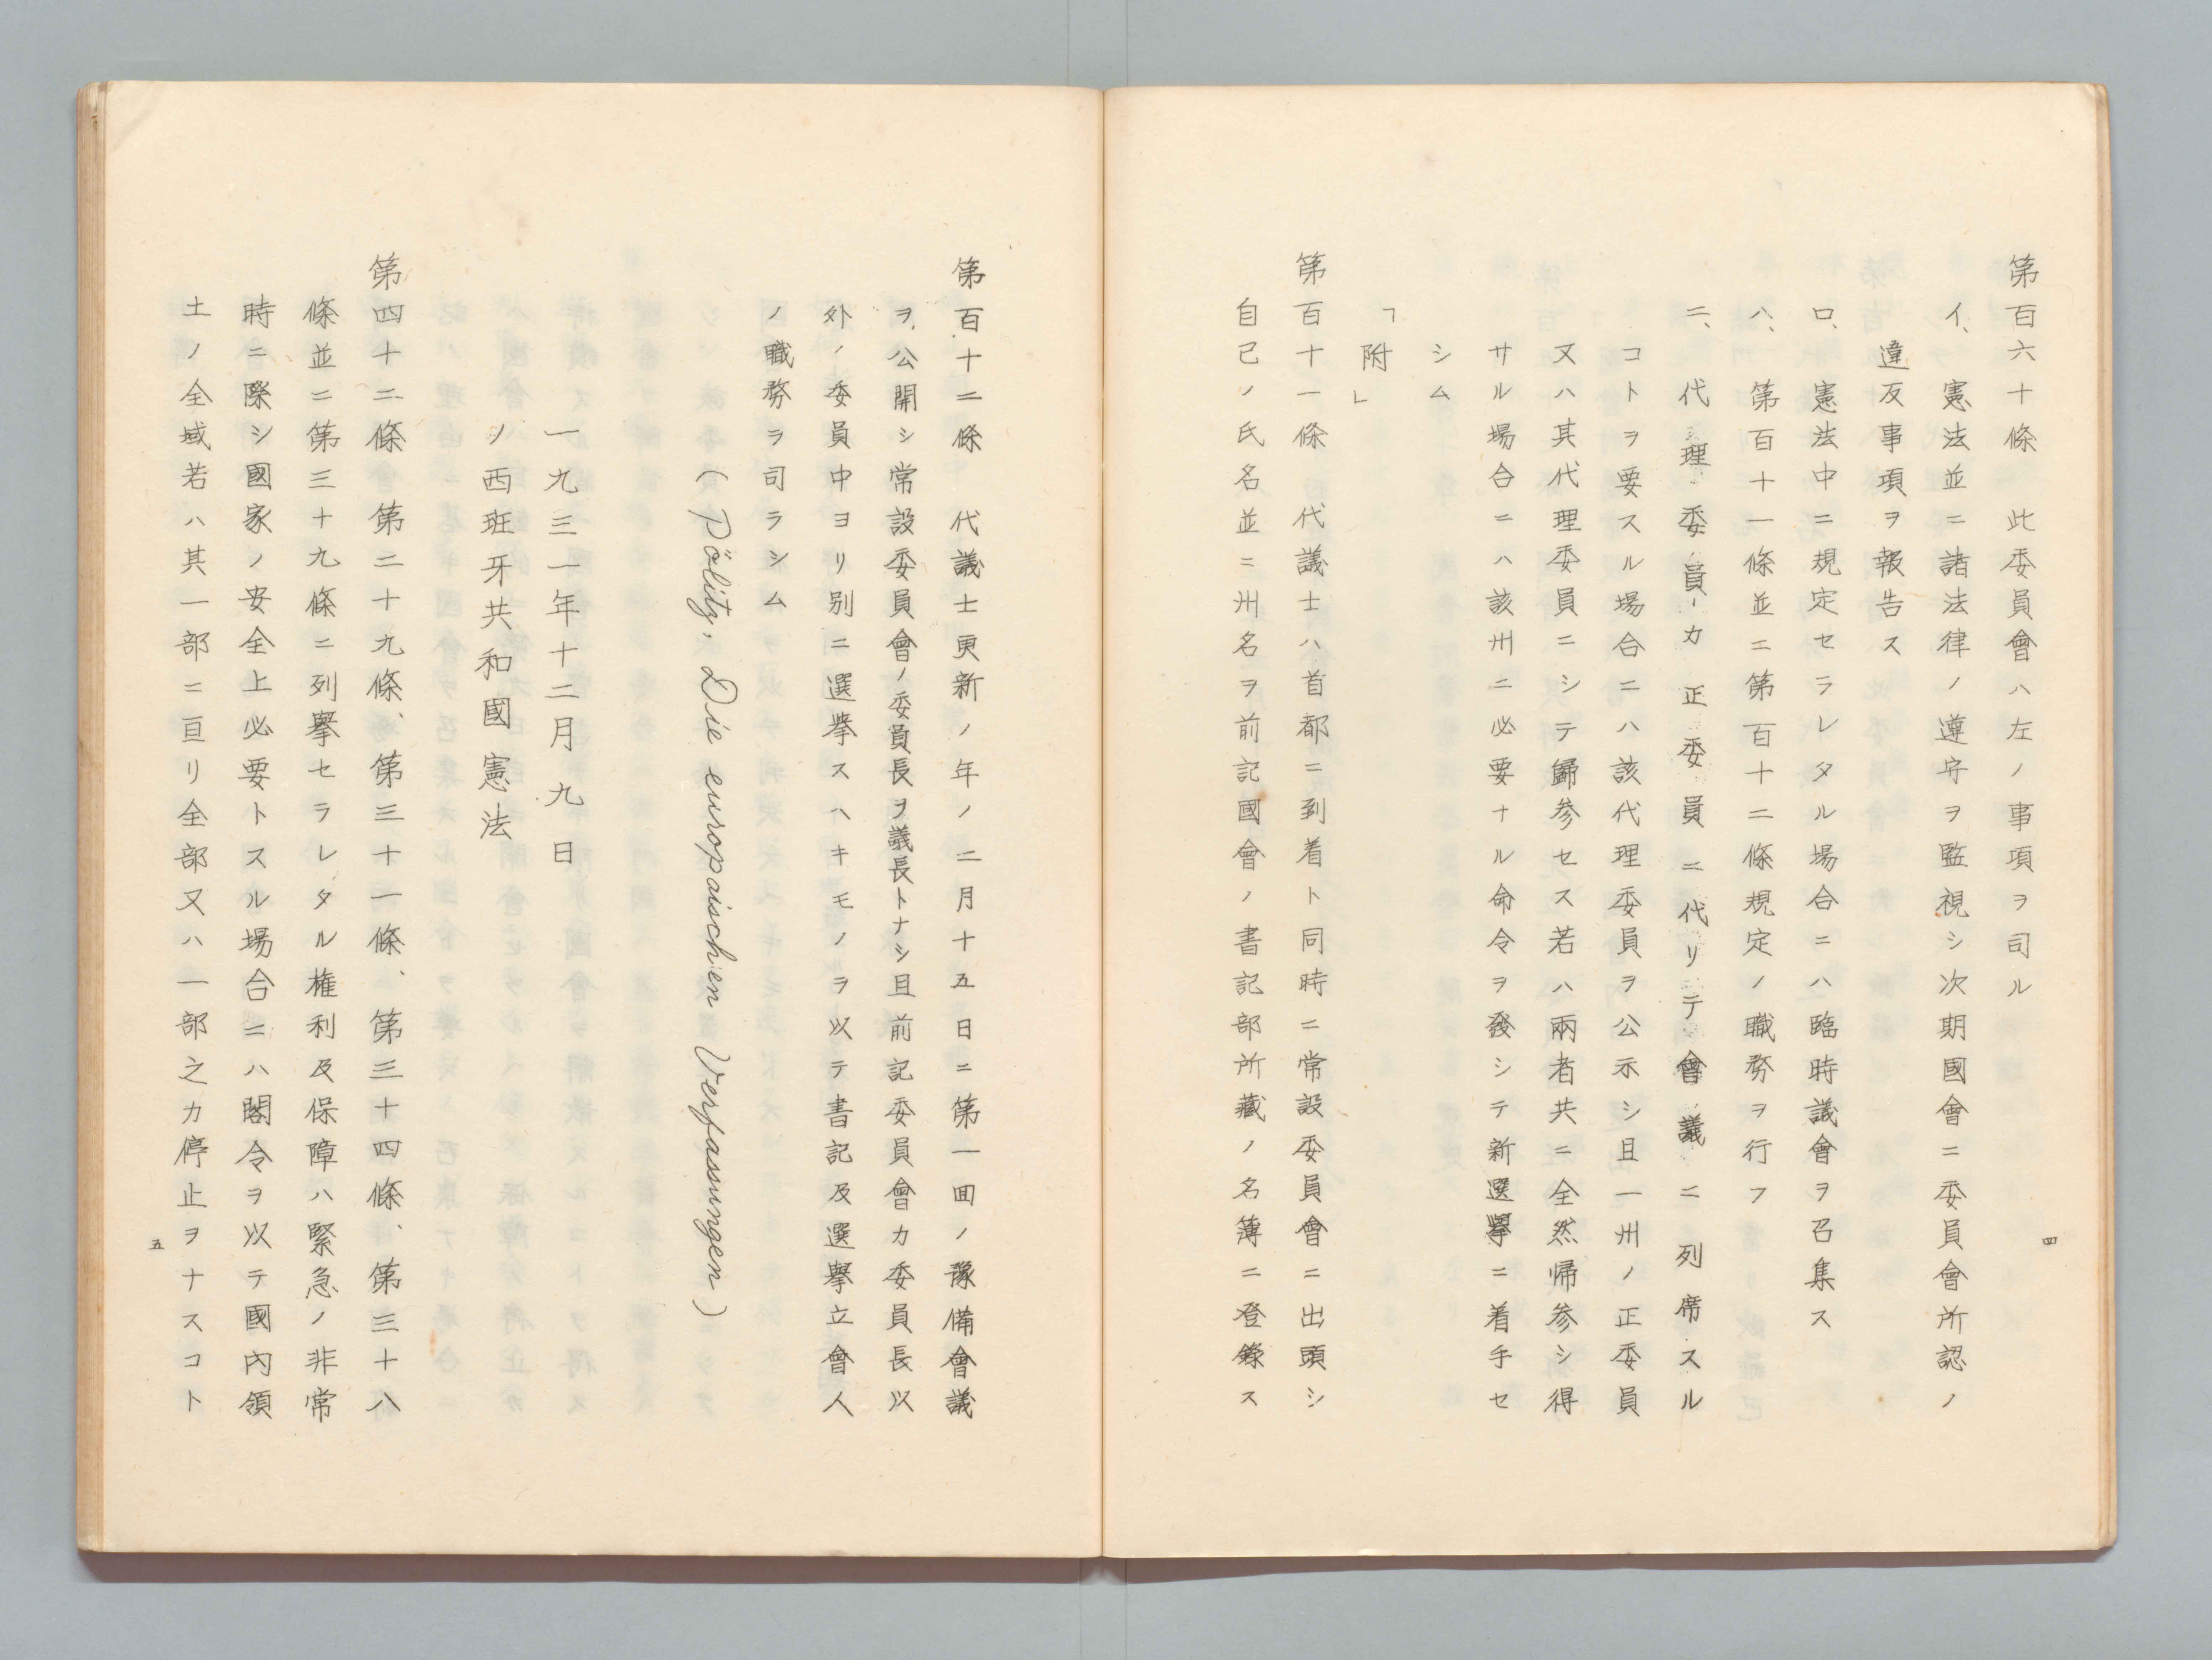 第百六十條　此委員會ハ左ノ事項ヲ司ル
イ、憲法並ニ諸法律ノ遵守ヲ監視シ次期國會ニ委員會所認ノ
違反事項ヲ報告ス
ロ、憲法中ニ規定セラレタル場合ニハ臨時議會ヲ召集ス
ハ、第百十一條並ニ第百十二條規定ノ職務ヲ行フ
ニ、代理委員カ正委員ニ代リテ會議ニ列席スル
コトヲ要スル場合ニハ該代理委員ヲ公示シ且一州ノ正委員
又ハ其代理委員ニシテ歸参セス若ハ兩者共ニ全然帰参シ得
サル場合ニハ該州ニ必要ナル命令ヲ發シテ新選擧ニ着手セ
シム
「附」
第百十一條　代議士ハ首都ニ到着ト同時ニ常設委員會ニ出頭シ
自己ノ氏名並ニ州名ヲ前記國會ノ書記部所藏ノ名簿ニ登錄ス
四
第百十二條　代議士更新ノ年ノ二月十五日ニ第一回ノ豫備會議
ヲ公開シ常設委員會ノ委員長ヲ議長トナシ且前記委員會カ委員長以
外ノ委員中ヨリ別ニ選挙スヘキモノヲ以テ書記及選擧立會人
ノ職務ヲ司ラシム
(Pölitz, Die europaischen Verfassungen)
一九三一年十二月九日
ノ西班牙共和國憲法
第四十二條　第二十九條、第三十一條、第三十四條、第三十八
條並ニ第三十九條ニ列擧セラレタル権利及保障ハ緊急ノ非常
時ニ際シ國家ノ安全上必要トスル場合ニハ閣令ヲ以テ國內領
土ノ全域若ハ其一部ニ亘リ全部又ハ一部之カ停止ヲナスコト
五